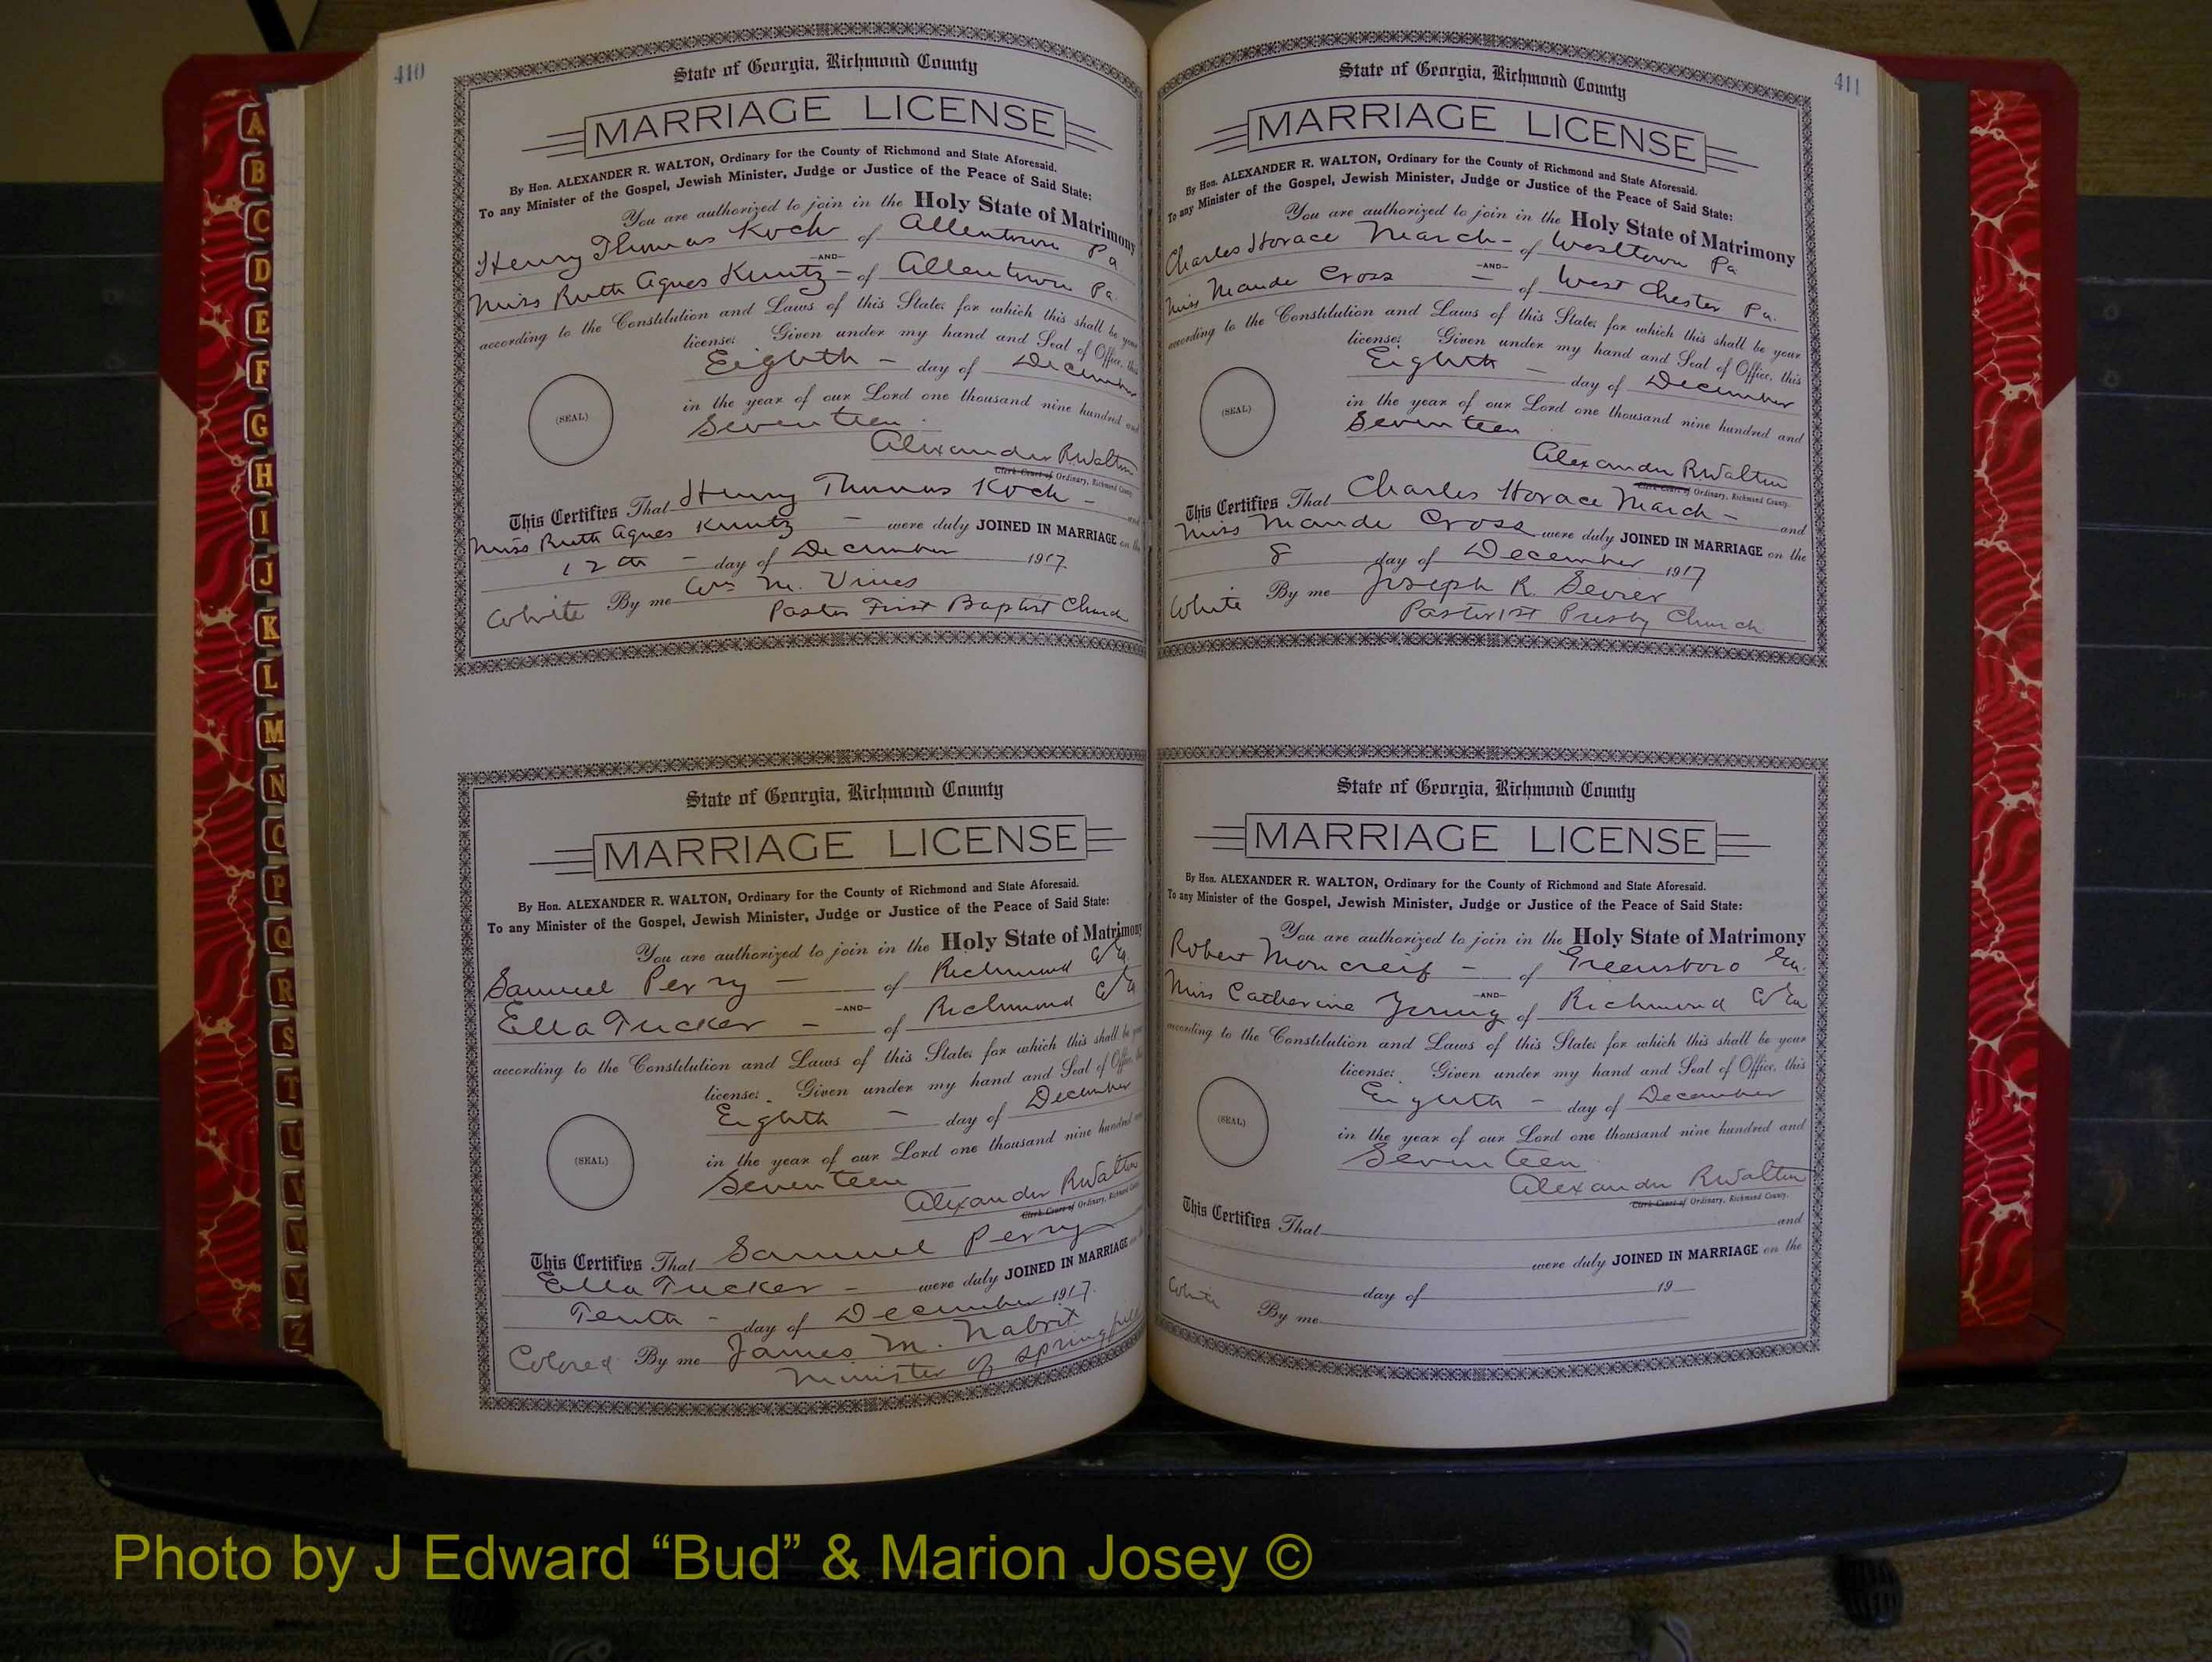 410
State of Georgia, Richmond County
MARRIAGE LICENSE
By Hon. ALEXANDER R. WALTON, Ordinary for the County of Richmond and State Aforesaid.
To any Minister of the Gospel, Jewish Minister, Judge or Justice of the Peace of Said State:
You are authorized to join in the Holy State of Matrimony
Henry Thomas Koch of Allentown Pa
-AND-
Miss Ruth Agnes Kuntz - of Allentown Pa.
according to the Constitution and Laws of this State, for which this shall be your
license. Given under my hand and Seal of Office, this
Eighth - day of December
(SEAL)
in the year of our Lord one thousand nine hundred and
Seventeen
Alexander R Walton
Clerk Court of Ordinary, Richmond County
This Certifies That Henry Thomas Koch - and
Miss Ruth Agnes Kuntz - were duly JOINED IN MARRIAGE on the
12th - day of December 1917
White By me Wm M. Vines
Pastor First Baptist Church
State of Georgia, Richmond County
MARRIAGE LICENSE
By Hon. ALEXANDER R. WALTON, Ordinary for the County of Richmond and State Aforesaid.
To any Minister of the Gospel, Jewish Minister, Judge or Justice of the Peace of Said State:
You are authorized to join in the Holy State of Matrimony
Samuel Perry - of Richmond Co Ga
-AND-
Ella Tucker - of Richmond Co Ga
according to the Constitution and Laws of this State, for which this shall be your
license. Given under my hand and Seal of Office, this
Eighth - day of December
(SEAL)
in the year of our Lord one thousand nine hundred and
Seventeen
Alexander R Walton
Clerk Court of Ordinary, Richmond County
This Certifies That Samuel Perry
Ella Tucker - were duly JOINED IN MARRIAGE on the
Tenth - day of December 1917.
Colored By me James M. Nabrit
Minister of Springfield
411
State of Georgia, Richmond County
MARRIAGE LICENSE
By Hon. ALEXANDER R. WALTON, Ordinary for the County of Richmond and State Aforesaid.
To any Minister of the Gospel, Jewish Minister, Judge or Justice of the Peace of Said State:
You are authorized to join in the Holy State of Matrimony
Charles Horace March - of Westtown Pa
-AND-
Miss Maude Cross - of West Chester Pa.
according to the Constitution and Laws of this State, for which this shall be your
license. Given under my hand and Seal of Office, this
Eighth - day of December
(SEAL)
in the year of our Lord one thousand nine hundred and
Seventeen
Alexander R Walton
Clerk Court of Ordinary, Richmond County
This Certifies That Charles Horace March - and
Miss Maude Cross were duly JOINED IN MARRIAGE on the
8 day of December 1917
White By me Joseph R. Sevier
Pastor 1st Presby Church
State of Georgia, Richmond County
MARRIAGE LICENSE
By Hon. ALEXANDER R. WALTON, Ordinary for the County of Richmond and State Aforesaid.
To any Minister of the Gospel, Jewish Minister, Judge or Justice of the Peace of Said State:
You are authorized to join in the Holy State of Matrimony
Robert Moncreif - of Greensboro Ga.
-AND-
Miss Catherine Young of Richmond Co Ga
according to the Constitution and Laws of this State, for which this shall be your
license. Given under my hand and Seal of Office, this
Eighth - day of December
(SEAL)
in the year of our Lord one thousand nine hundred and
Seventeen
Alexander R Walton
Clerk Court of Ordinary, Richmond County.
This Certifies That and
were duly JOINED IN MARRIAGE on the
day of 19
White By me
A
B
C
D
E
F
G
H
I
J
K
L
M
N
O
P
Q
R
S
T
U
V
W
Y
Z
Photo by J Edward “Bud” & Marion Josey ©